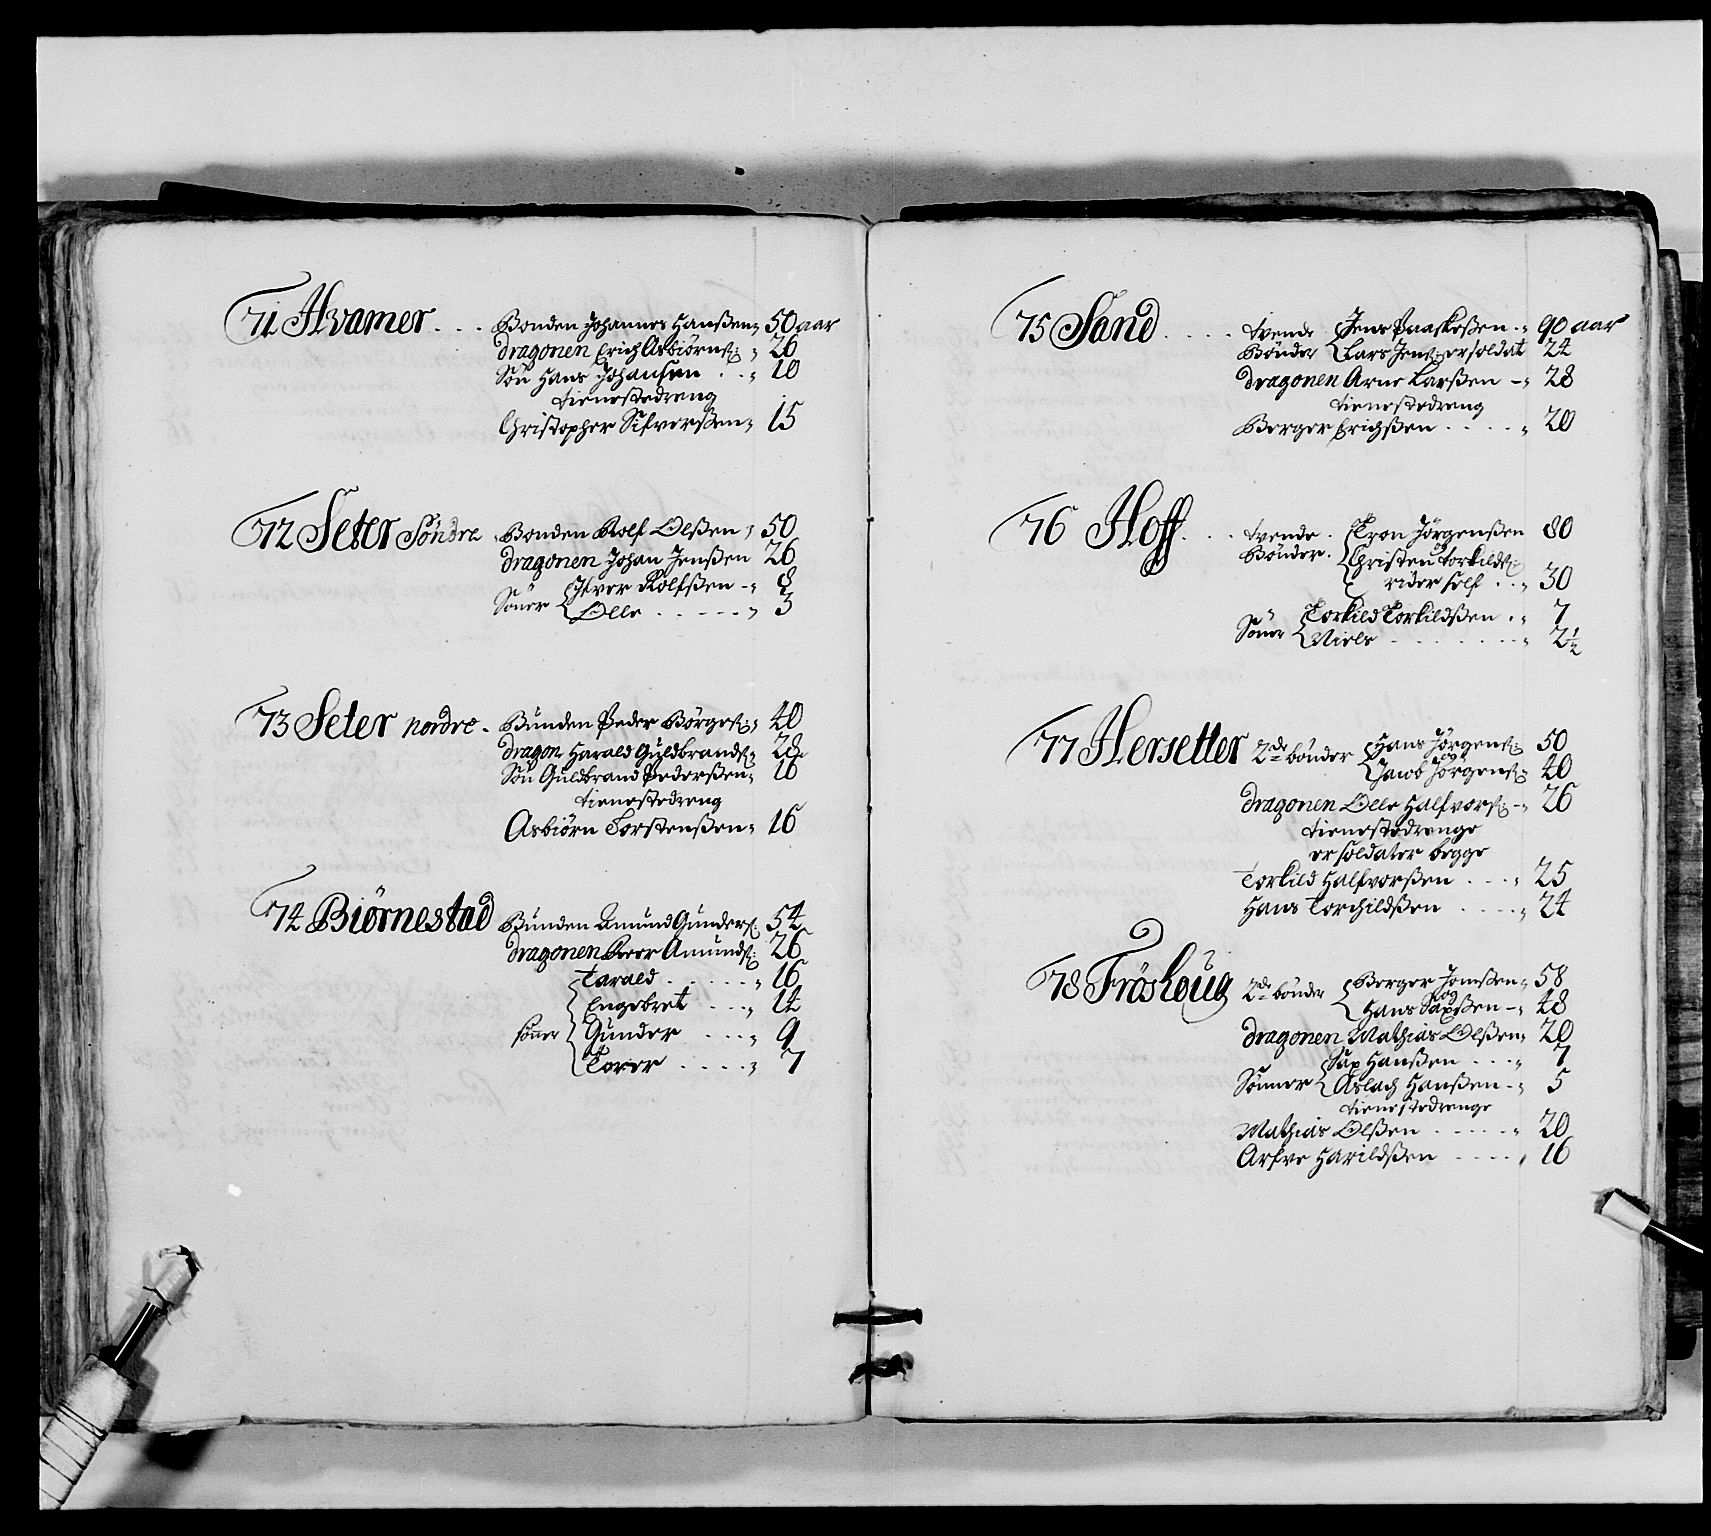 71 Hvamer . . . Bonden Johannes Hanßen 50 aar
dragonen Erich Asbiörnß: 26
Sön Hans Johansen . . 10
tienestedreng
Christopher Sifverßen 15
72 Seter Söndre Bonden Rolf Olßen 50
dragonen Johan Jenßen 26
Söner Ifver Rolfßen 8
Olle . . . . . 3
73 Seter nordre . Bunden Peder Börgeß: 40
dragon Harald Guldbrandß: 28
Sön Guldbrand Pederßen 10
tienestedreng
Asbiörn Torstenßen 16
74 Biörnestad Bunden Amund Gunderß: 54
dragonen Amundß: 26
Tarald . . . . . 16
Engebret . . . 14
sönner Gunder . . . . 9
Torer . . . . . 7
75 Sand . . . . . tvende Jens Paaskeßen . 90 aar
Bönder Lars Jenß: er soldat 24
dragonen Arne Larßen 28
tienestedreng
Berger Erichßen . . . . 20
76 Hoff . . . tvende . Tron Jörgenßen 80
Bönder . og Christen Torkildß:
rider self . . 30
Söner Torkild Torkildßen . 7
Niels . . . . . . . 2½
77 Hersetter 2de bönder Hans Jörgenß: 50
og Jacob Jörgenß: 40
dragonen Olle Halfvorß: 26
tienestedrenge
er soldater begge
Torkild Halfvorßen . . . 25
Hans Torchildßen . . . . 24
78 Fröshoug 2de bönder Berger Jonßen 58
og Hans Saxßen 48
dragonen Mathias Olßen 20
Sax Hanßen . . . 7
Sönner Aslach Hanßen . 5
tienestedrenge
Mathias Olßen . . . . . 20
Arfve Harildßen . . . . 16